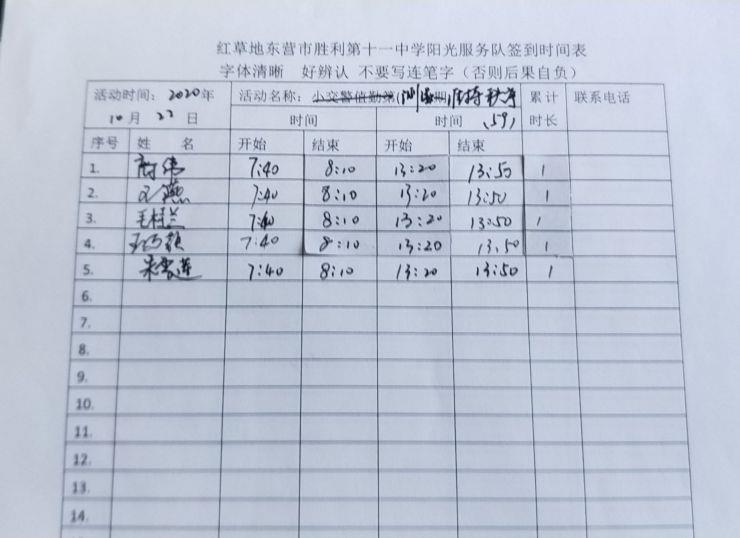 红草地东营市胜利第十一中学阳光服务队签到时间表
字体清晰 好辨认 不要写连笔字（否则后果自负）
活动时间：2020年 活动名称： 维持秩序 累计 联系电话
10月 22 日 时间 时间 时长
序号 姓 名 开始 结束 开始 结束
1. 7:40 8:10 13:20 13:50 1
2. 王燕 7:40 8:10 13:20 13:50 1
3. 毛桂兰 7:40 8:10 13:20 13:50 1
4. 7:40 8:10 13:20 13:50 1
5. 7:40 8:10 13:20 13:50 1
6.
7.
8.
9.
10.
11.
12.
13.
14.